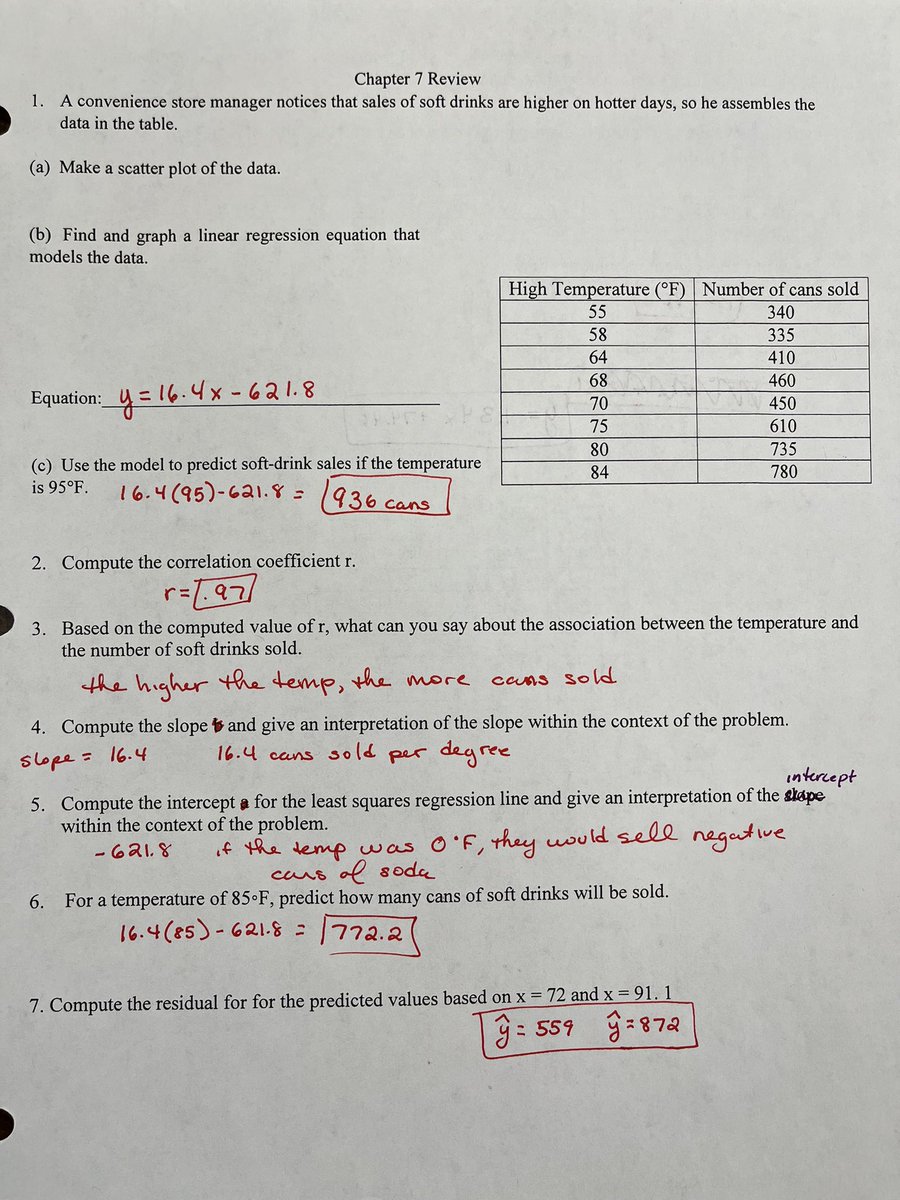 Chapter 7 Review
1. A convenience store manager notices that sales of soft drinks are higher on hotter days, so he assembles the
data in the table.
(a) Make a scatter plot of the data.
(b) Find and graph a linear regression equation that
models the data.
High Temperature (°F) Number of cans sold
55 340
58 335
64 410
68 460
70 450
75 610
80 735
84 780
Equation: y = 16.4x - 621.8
(c) Use the model to predict soft-drink sales if the temperature
is 95°F. 16.4(95)-621.8 = 936 cans
2. Compute the correlation coefficient r.
r = .97
3. Based on the computed value of r, what can you say about the association between the temperature and
the number of soft drinks sold.
the higher the temp, the more cans sold
4. Compute the slope and give an interpretation of the slope within the context of the problem.
slope = 16.4 16.4 cans sold per degree
intercept
5. Compute the intercept a for the least squares regression line and give an interpretation of the slope
within the context of the problem.
-621.8 if the temp was 0°F, they would sell negative
cans of soda
6. For a temperature of 85∘F, predict how many cans of soft drinks will be sold.
16.4(85) - 621.8 = 772.2
7. Compute the residual for for the predicted values based on x = 72 and x = 91. 1
ŷ = 559 ŷ = 872